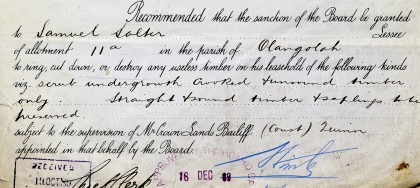 Recommended that the sanction of the Board be granted
to Samuel Solter Lessee
of allotment 11a in the parish of Olangolah
to ring, cut down, or destroy any useless timber on his leasehold of the following kinds
viz. scrub undergrowth crooked & unsound timber
only. Straight & sound timber & saplings to be
preserved
subject to the supervision of Mr Crown Lands Bailiff (Const) Quinn
appointed in that behalf by the Board.
RECEIVED
18 DEC